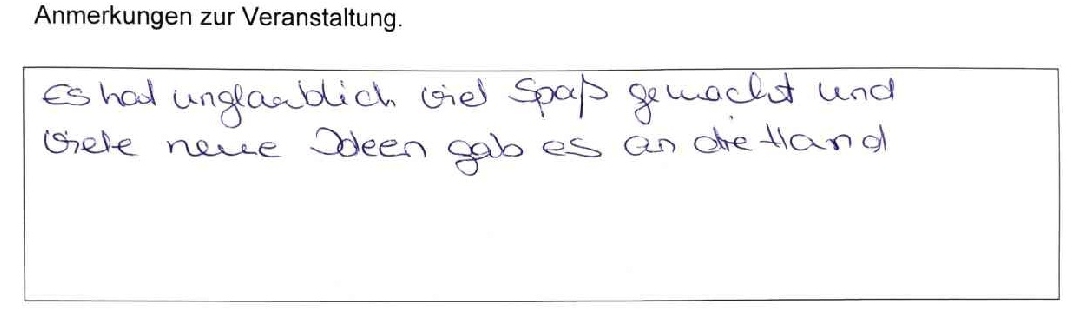 Anmerkungen zur Veranstaltung.
Es hat unglaublich viel Spaß gemacht und
viele neue Ideen gab es an die Hand